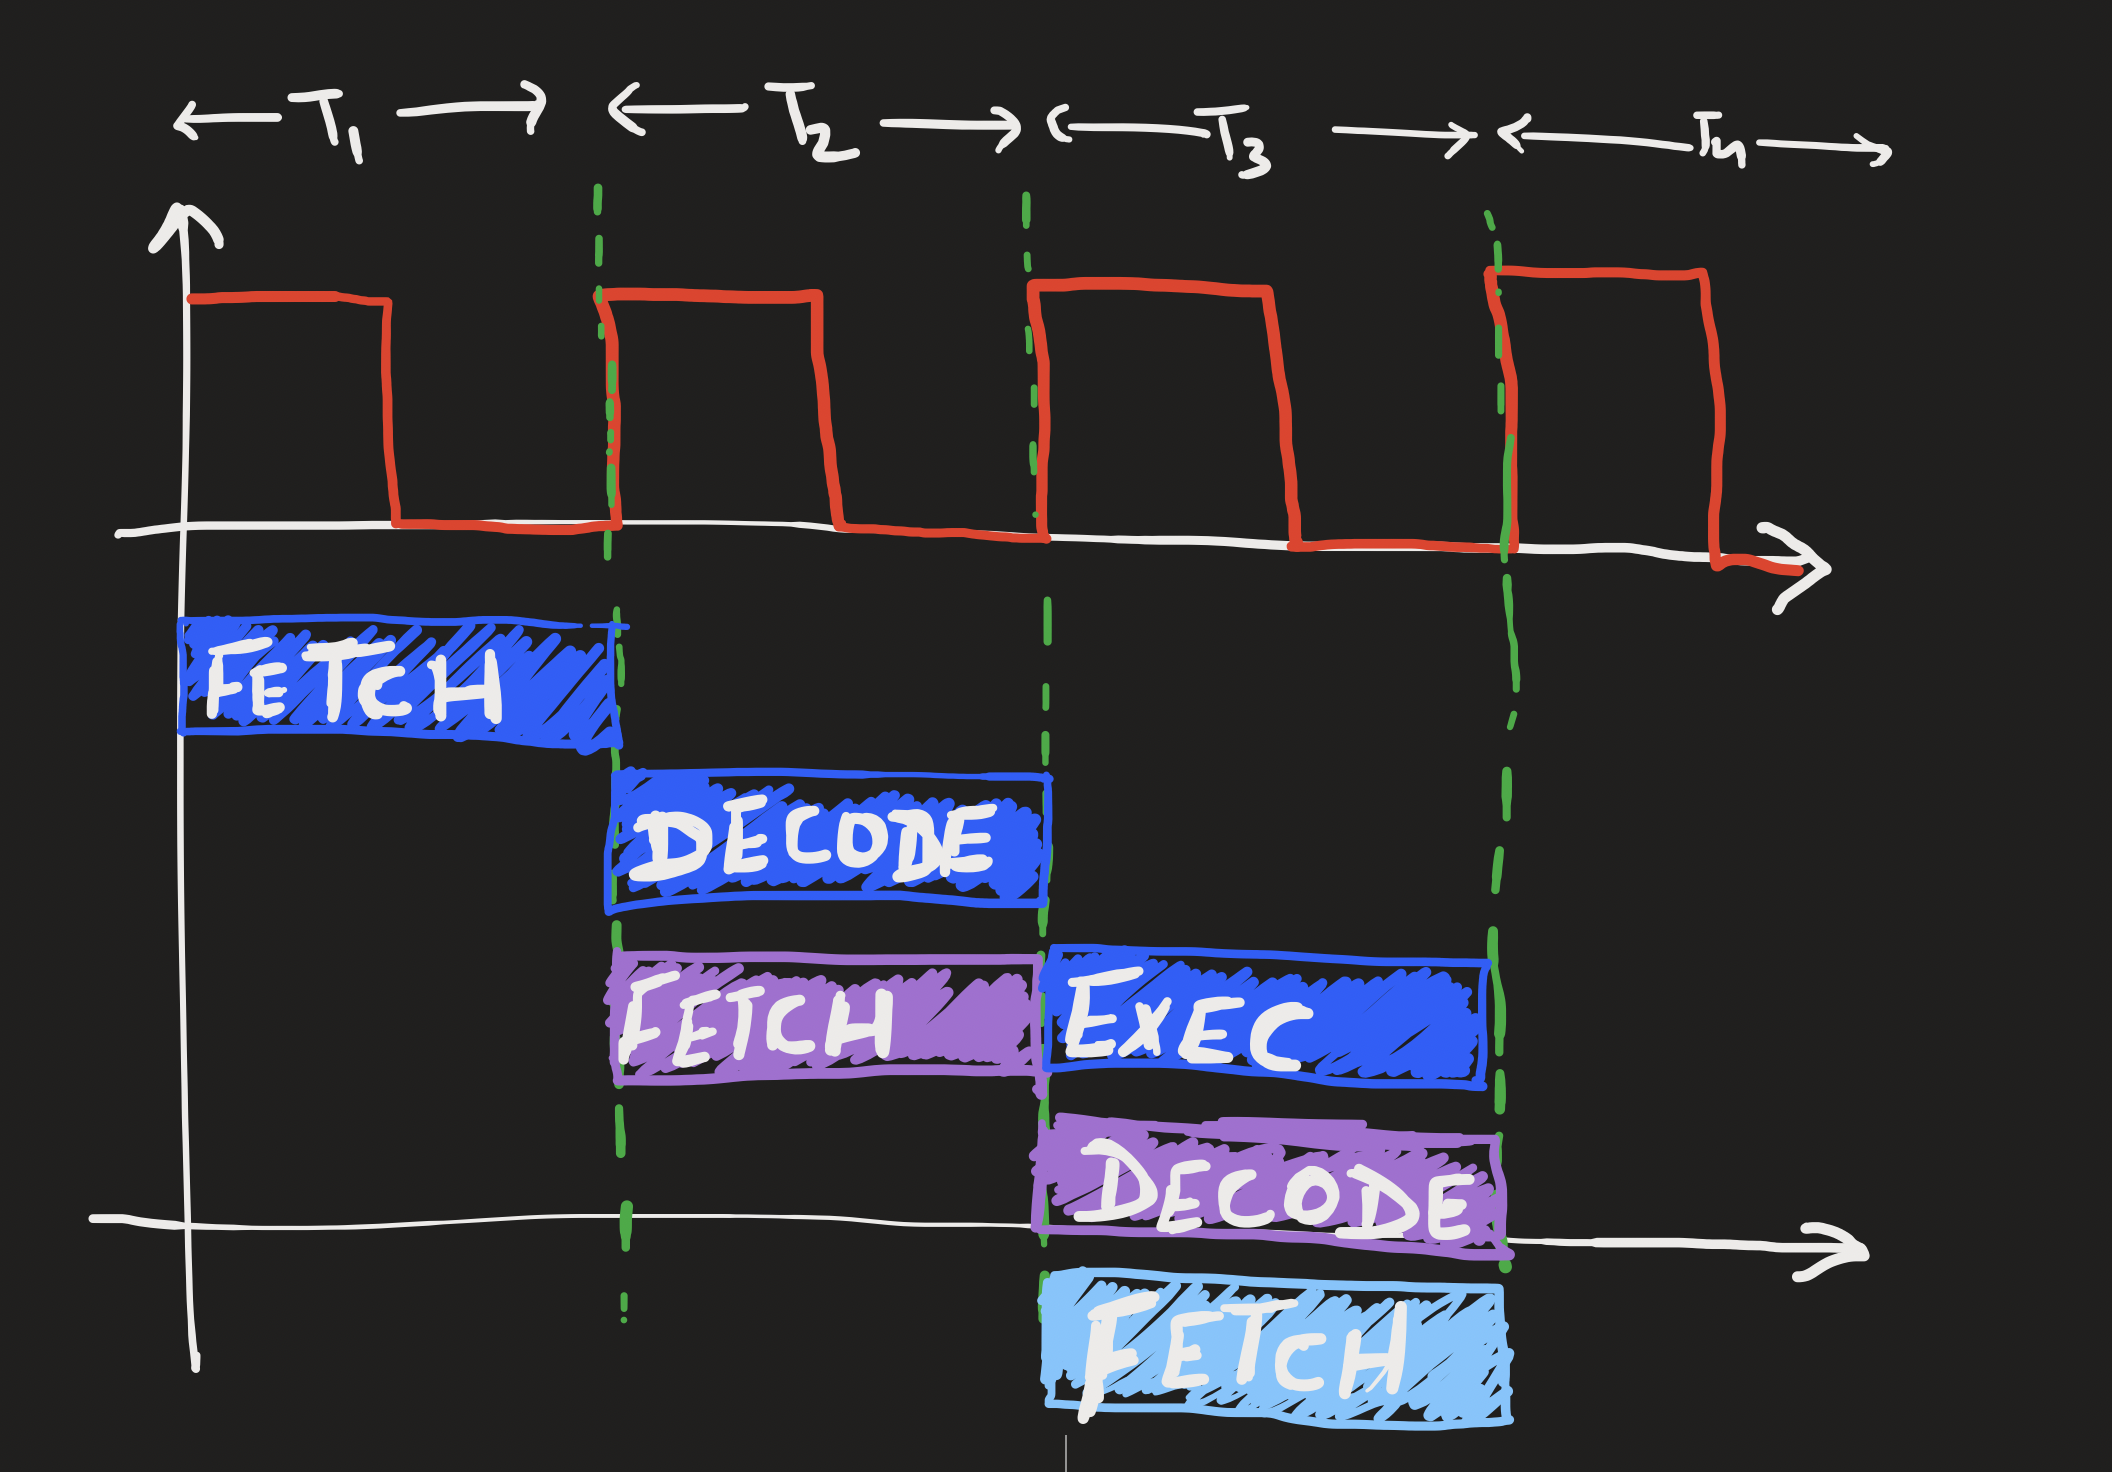 T1 T2 T3 Tn
FETCH
DECODE
FETCH EXEC
DECODE
FETCH